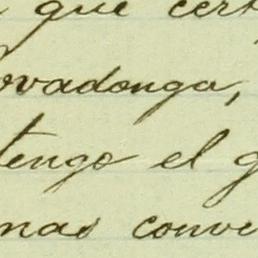 que cert
ovadonga,
tengo el g
mas conve